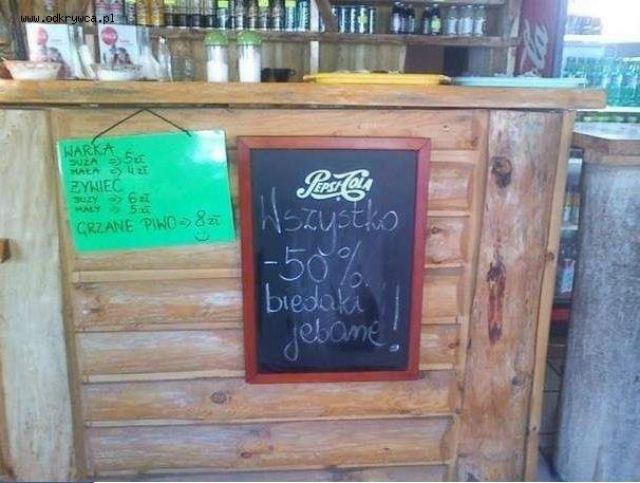 www.odkrywca.pl
WARKA
DUŻA => 5 zł
MAŁA => 4 zł
ŻYWIEC
DUŻY => 6 zł
MAŁY => 5 zł
GRZANE PIWO => 8 zł
PEPSI-COLA
Wszystko
-50%
biedaki
jebane!